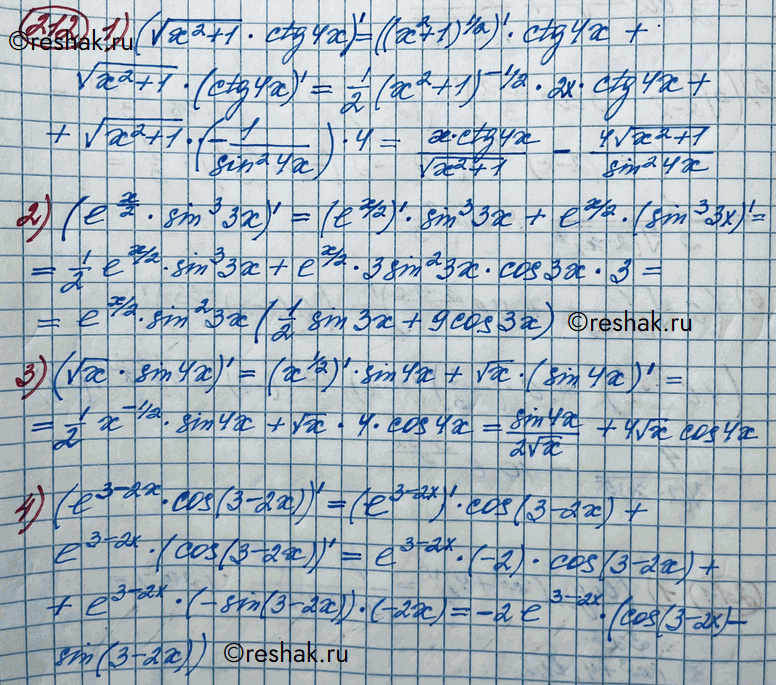 212 1) (√x²+1 · ctg4x)' = ((x²+1)^1/2)' · ctg4x +
√x²+1 · (ctg4x)' = 1/2 (x²+1)^-1/2 · 2x · ctg4x +
+ √x²+1 · (- 1/sin²4x) · 4 = x·ctg4x/√x²+1 - 4√x²+1/sin²4x
2) (e^x/2 · sin³3x)' = (e^x/2)' · sin³3x + e^x/2 · (sin³3x)' =
= 1/2 e^x/2 · sin³3x + e^x/2 · 3sin²3x · cos3x · 3 =
= e^x/2 · sin²3x (1/2 sin3x + 9cos3x) ©reshak.ru
3) (√x · sin4x)' = (x^1/2)' · sin4x + √x · (sin4x)' =
= 1/2 x^-1/2 · sin4x + √x · 4 · cos4x = sin4x/2√x + 4√x cos4x
4) (e^3-2x · cos(3-2x))' = (e^3-2x)' · cos(3-2x) +
e^3-2x · (cos(3-2x))' = e^3-2x · (-2) · cos(3-2x) +
+ e^3-2x · (-sin(3-2x)) · (-2x) = -2e^3-2x · (cos(3-2x) -
sin(3-2x)) ©reshak.ru